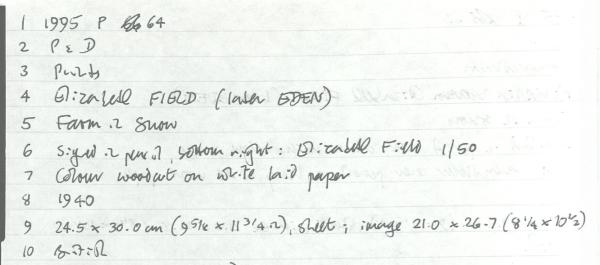 1 1995 P 64
2 P & D
3 Prints
4 Elizabeth FIELD (later EDEN)
5 Farm in Snow
6 Signed in pencil, bottom right: Elizabeth Field 1/50
7 Colour woodcut on white laid paper
8 1940
9 24.5 x 30.0 cm (9 5/8 x 11 3/4 in), sheet; image 21.0 x 26.7 (8 1/4 x 10 1/2)
10 British